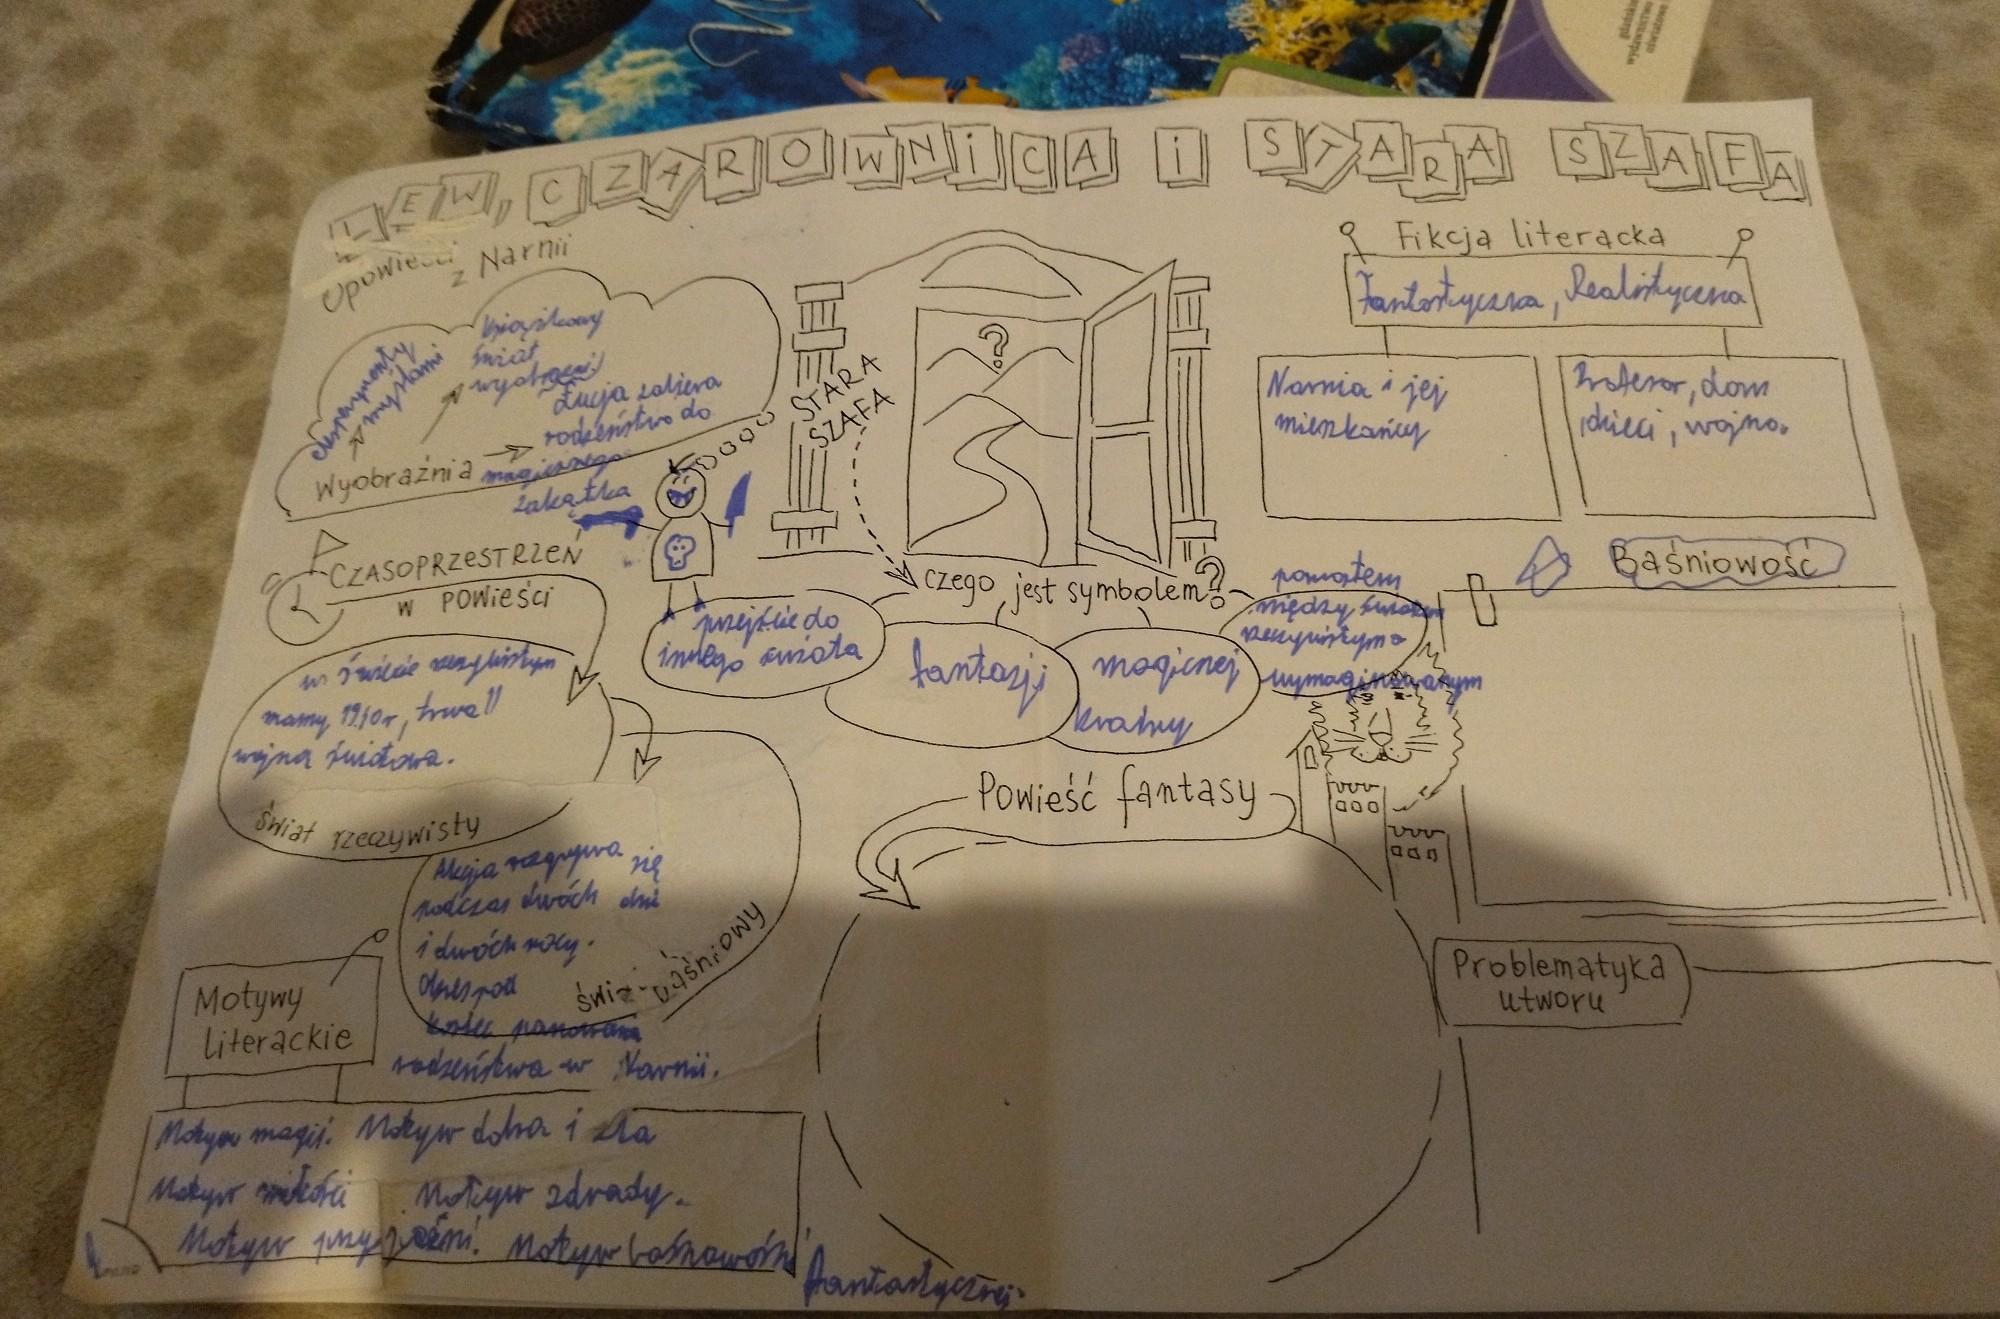 LEW, CZAROWNICA i STARA SZAFA
Opowieści
z Narnii
myślami
książkowy
świat
Łucja zabiera
rodzeństwo do
magicznego
zakątka
Wyobraźnia
STARA
SZAFA
?
czego jest symbolem?
przejście do
innego świata
fantazji
magicznej
krainy
pomostem
między światem
rzeczywistym a
wymaginowanym
Fikcja literacka
Fantastyczna, Realistyczna
Narnia i jej
mieszkańcy
Profesor, dom
dzieci, wojna.
CZASOPRZESTRZEŃ
w POWIEŚCI
w świecie rzeczywistym
mamy 1940r, trwa II
wojna światowa.
świat rzeczywisty
Akcja rozgrywa się
podczas dwóch dni
i dwóch nocy.
rodzeństwa w Narnii.
baśniowy
Motywy
literackie
Motyw magii. Motyw dobra i zła
Motyw miłości Motyw zdrady.
Motyw przyjaźni. Motyw baśniowości
fantastycznej.
Powieść fantasy
Baśniowość
Problematyka
utworu